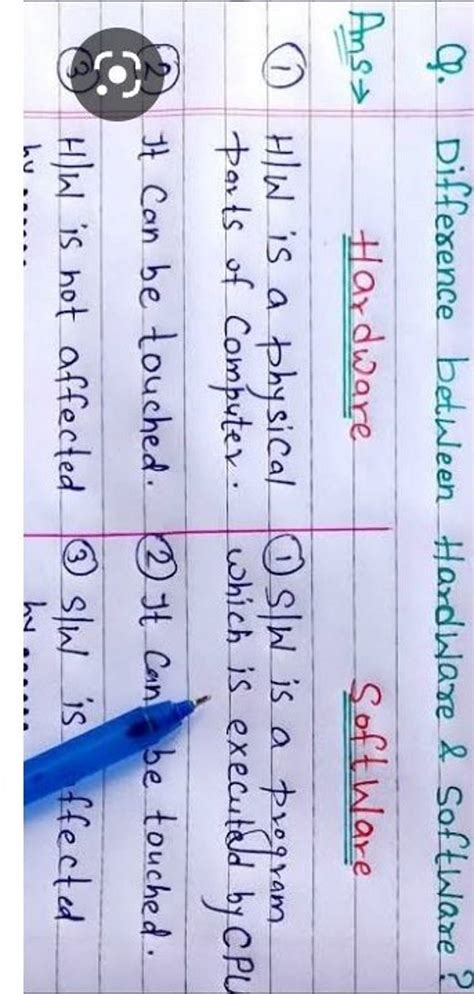 Q. Difference between Hardware & Software?
Ans→ Hardware Software
① H/W is a physical ① S/W is a program
parts of Computer. which is executed by CPU
② It Can be touched. ② It Can be touched.
③ H/W is not affected ③ S/W is ffected